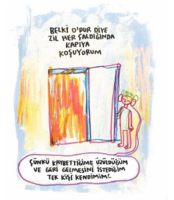 BELKİ O'DUR DİYE
ZİL HER ÇALDIĞINDA
KAPIYA
KOŞUYORUM
ÇÜNKÜ KAYBETTİĞİME ÜZÜLDÜĞÜM
VE GERİ GELMESİNİ İSTEDİĞİM
TEK KİŞİ KENDİMİM!